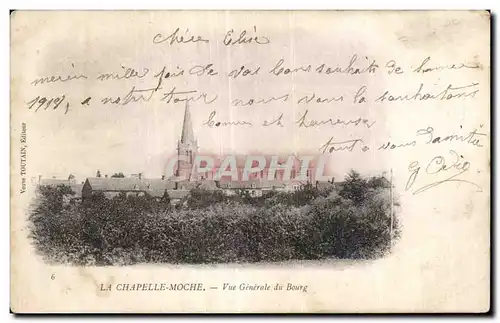 Chère Elise
merci mille fois de vos bons souhaits de bonne
1912, a notre tour nous vous la souhaitons
bonne et heureuse
tout a vous d'amitié
CARPHI
Veuve TOUTAIN, Editeur
6
LA CHAPELLE-MOCHE. — Vue Générale du Bourg